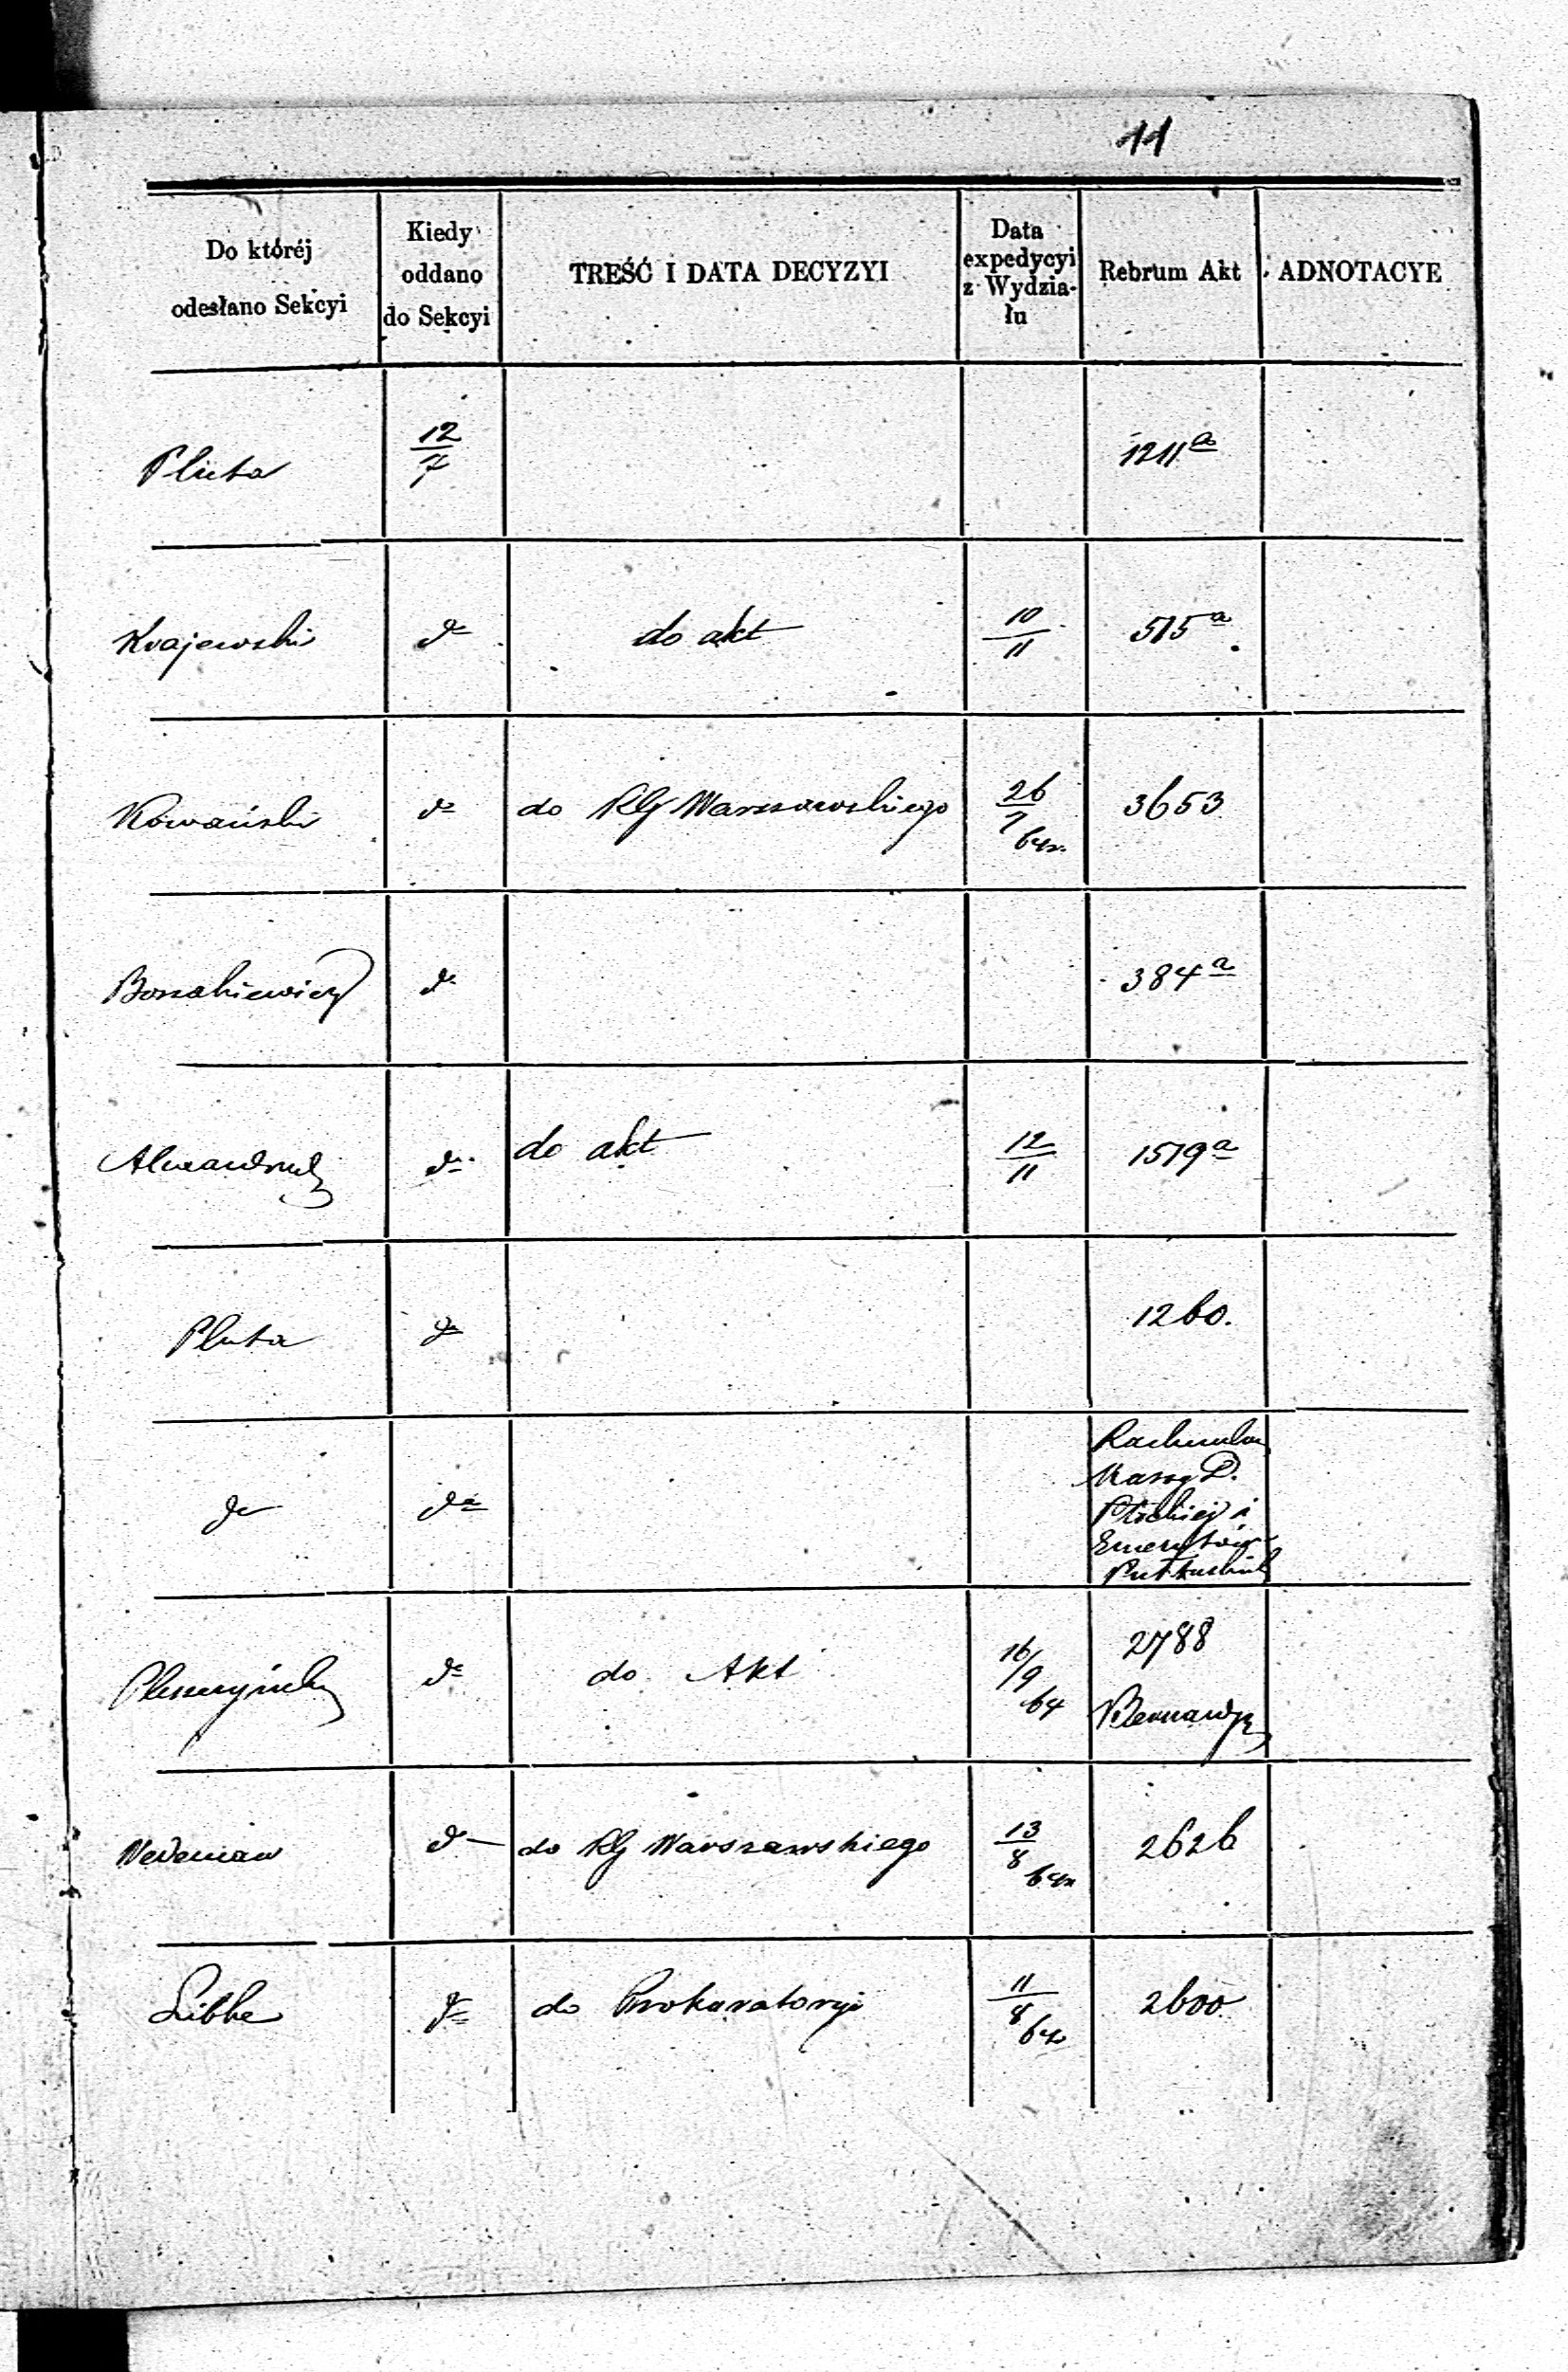 11
Do któréj odesłano Sekcyi | Kiedy oddano do Sekcyi | TREŚĆ I DATA DECYZYI | Data expedycyi z Wydzia-łu | Rebrum Akt | ADNOTACYE
Pluta | 12/7 | | | 1211a
Krajewski | do | do akt | 10/11 | 515a
Kowański | do | do RG Warszawskiego | 26/7 64 r. | 3653
Borzakiewicz | do | | | 384a
do | do akt | 12/11 | 1519a
Pluta | do | | | 1260.
do | do | | |
Massy D.
Płockiej i
Emerytów
do | do Akt | 16/9 64 | 2788
do | do RG Warszawskiego | 13/8 64 r | 2626
Libke | do | do Prokuratoryi | 11/8 64 | 2600